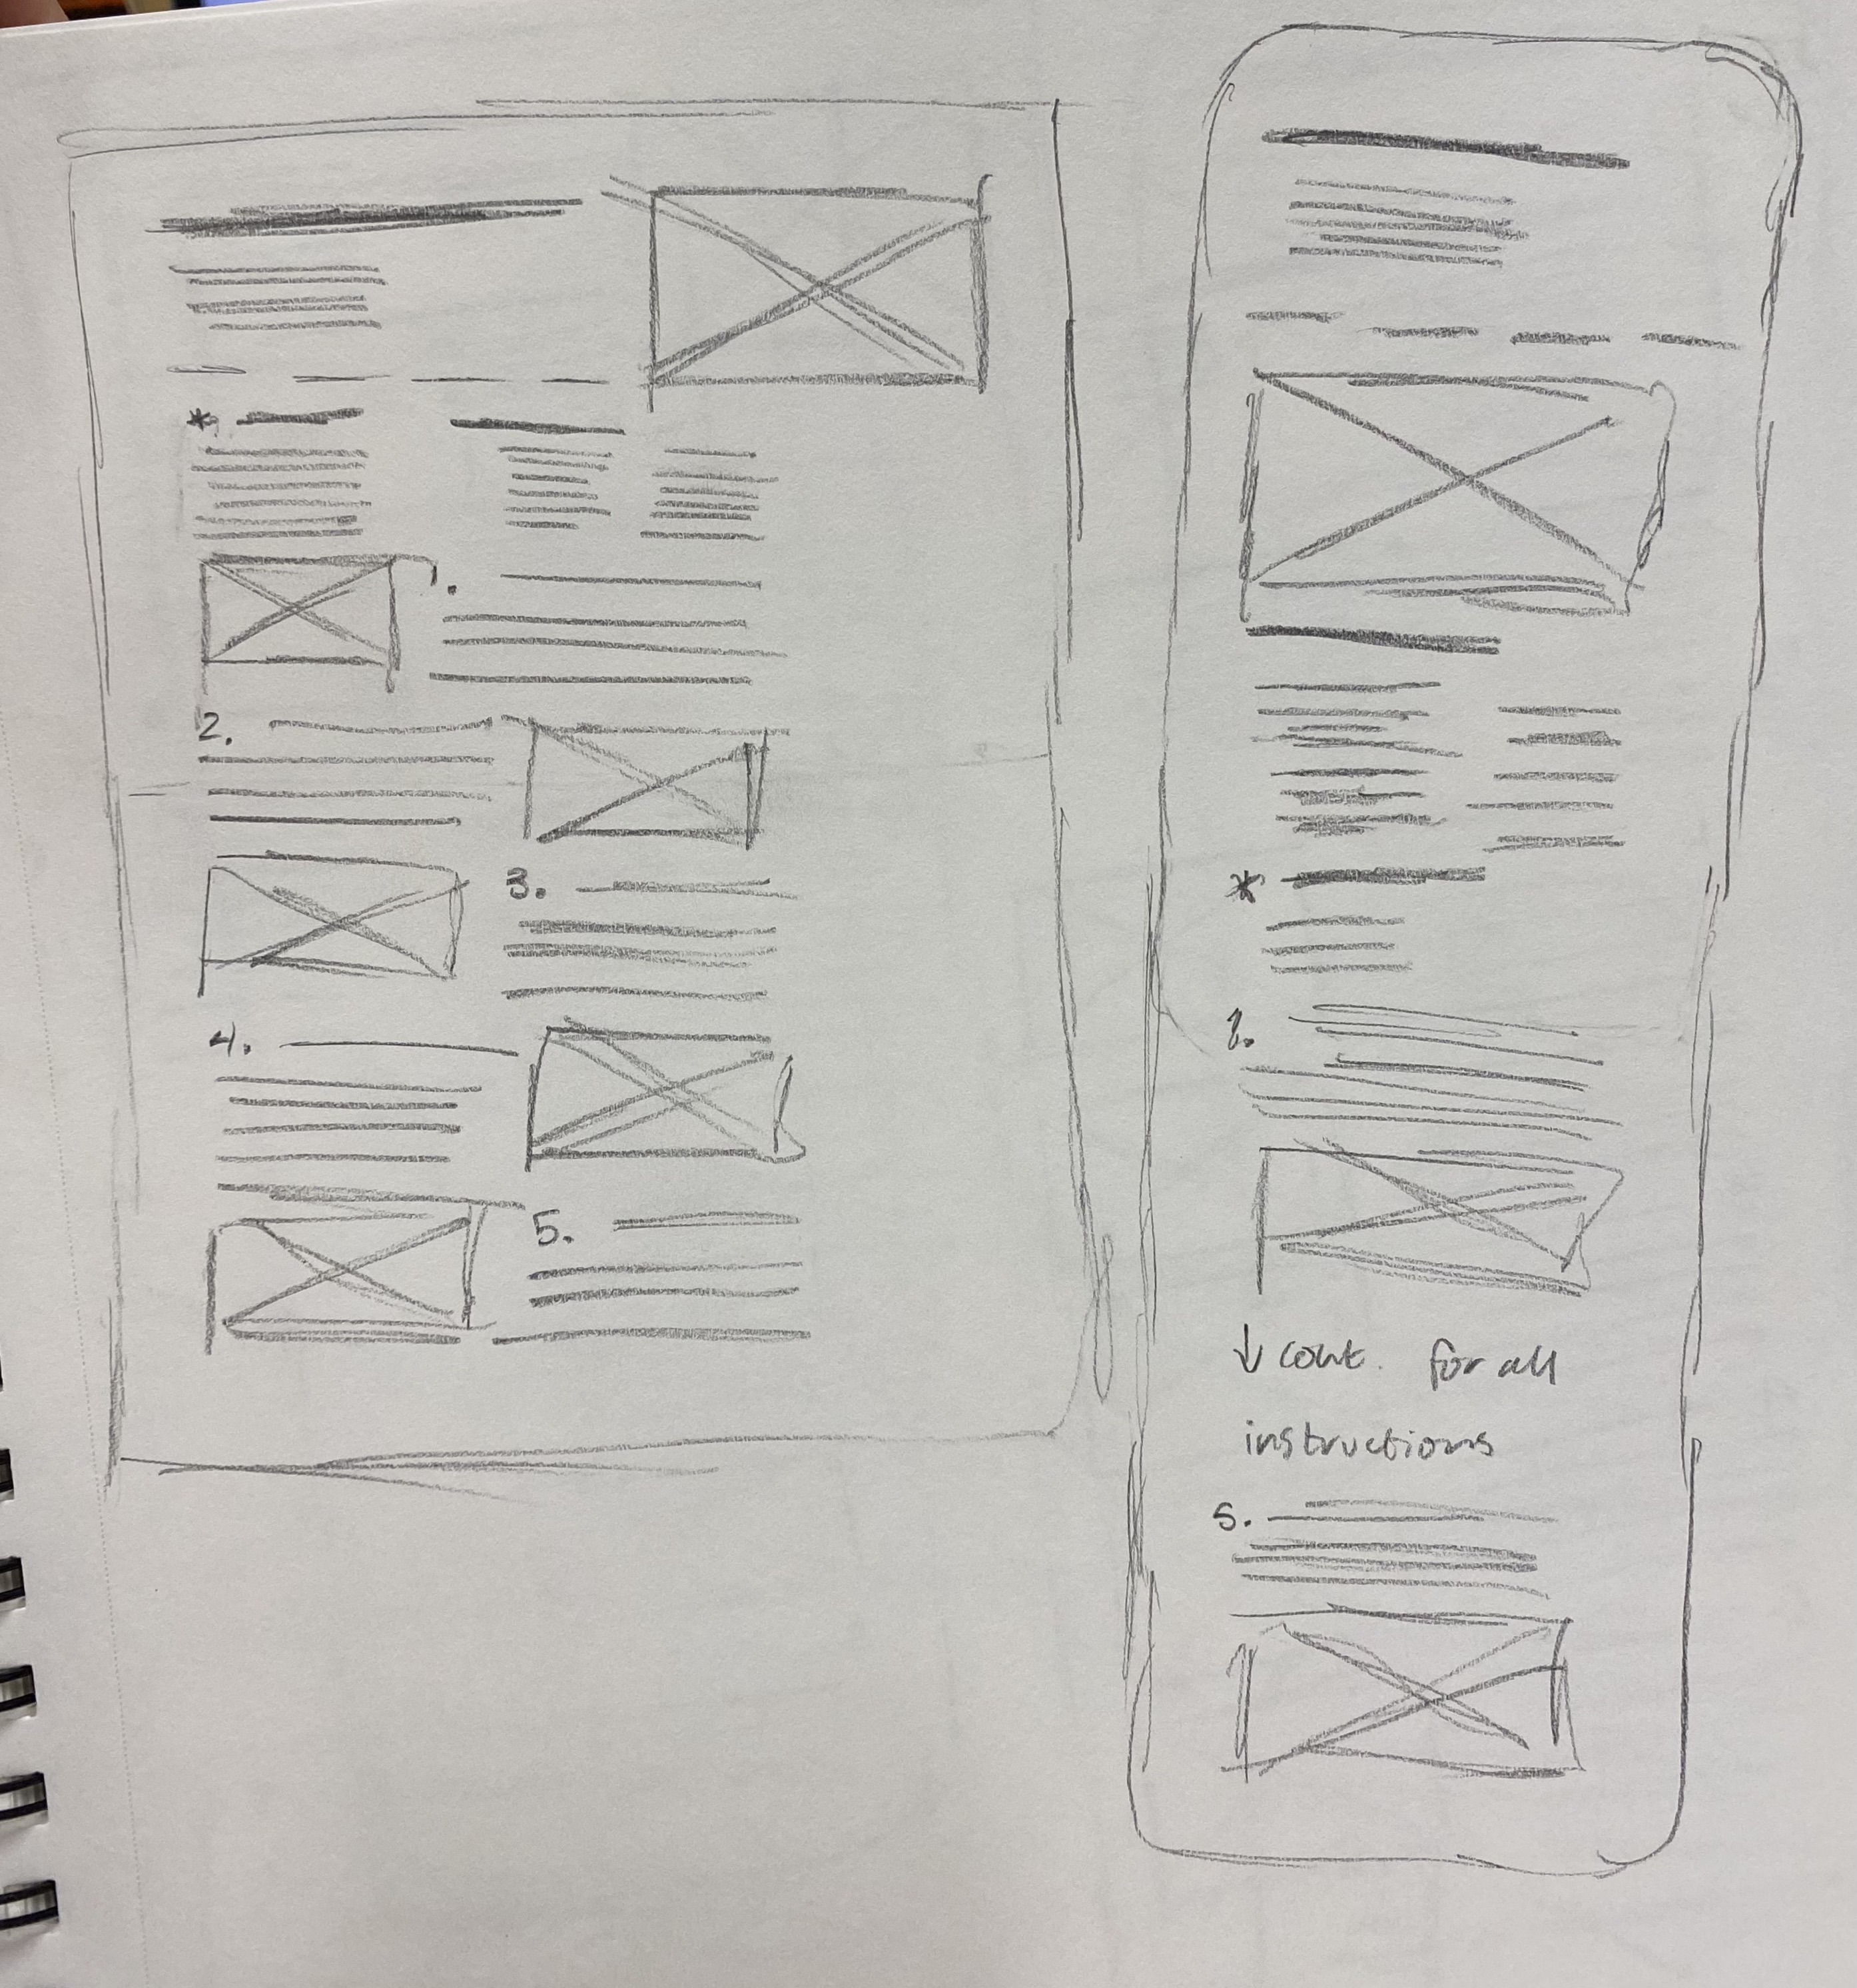 *
.
2.
3.
4.
5.
*
1.
↓ cont. for all
instructions
5.